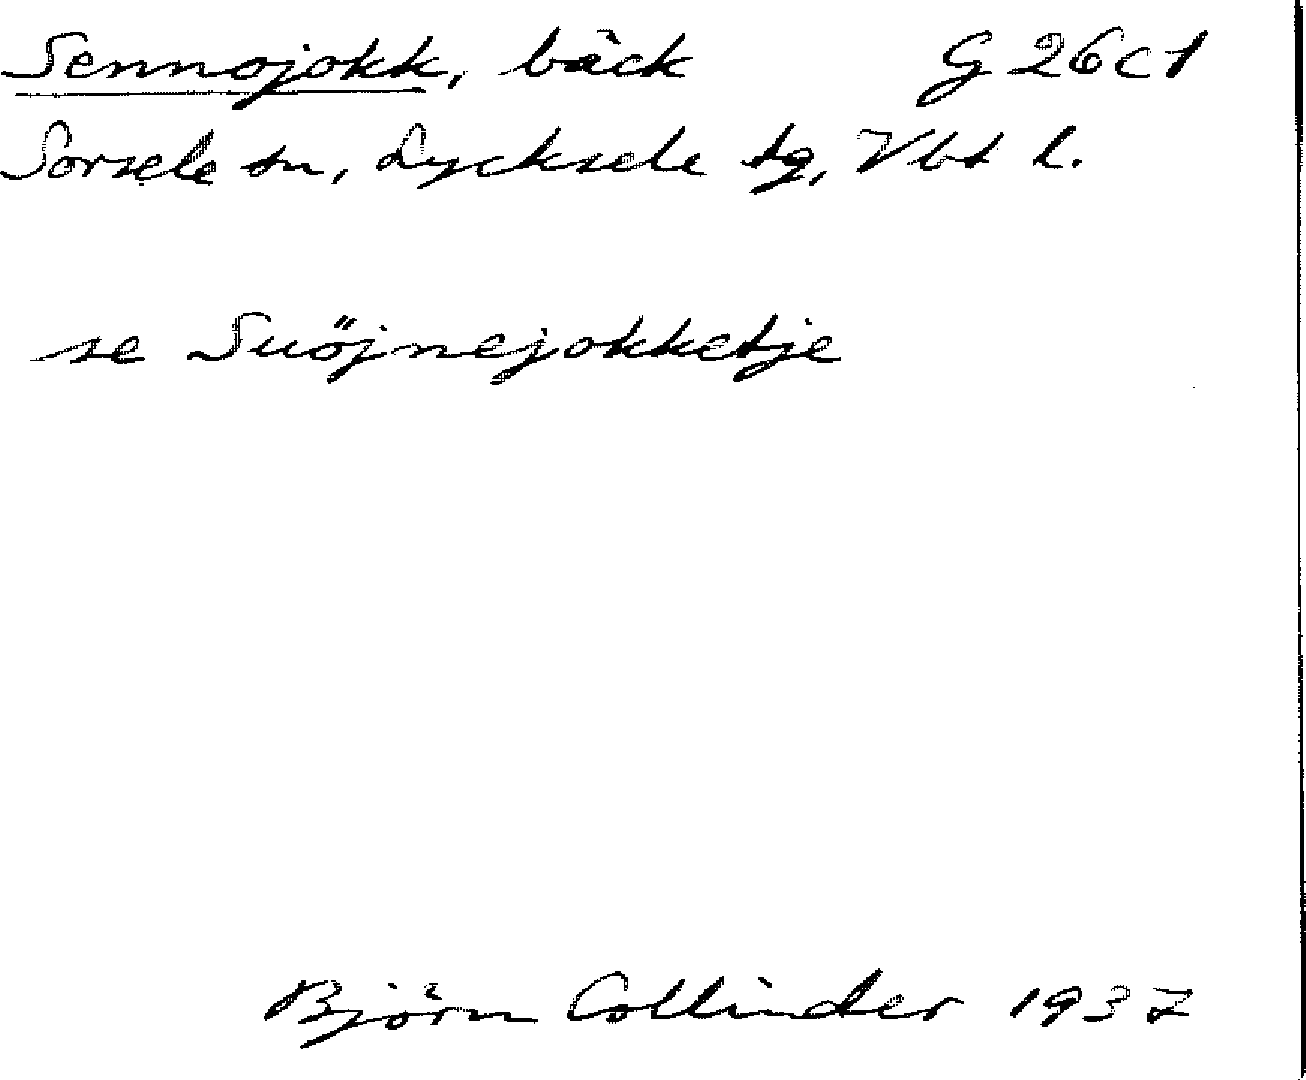 Sennojokk, bäck G 26 c 1
Sorsele sn, Lycksele tg, Vbt l.
se Suöjnejokketje
Björn Collinder 1937